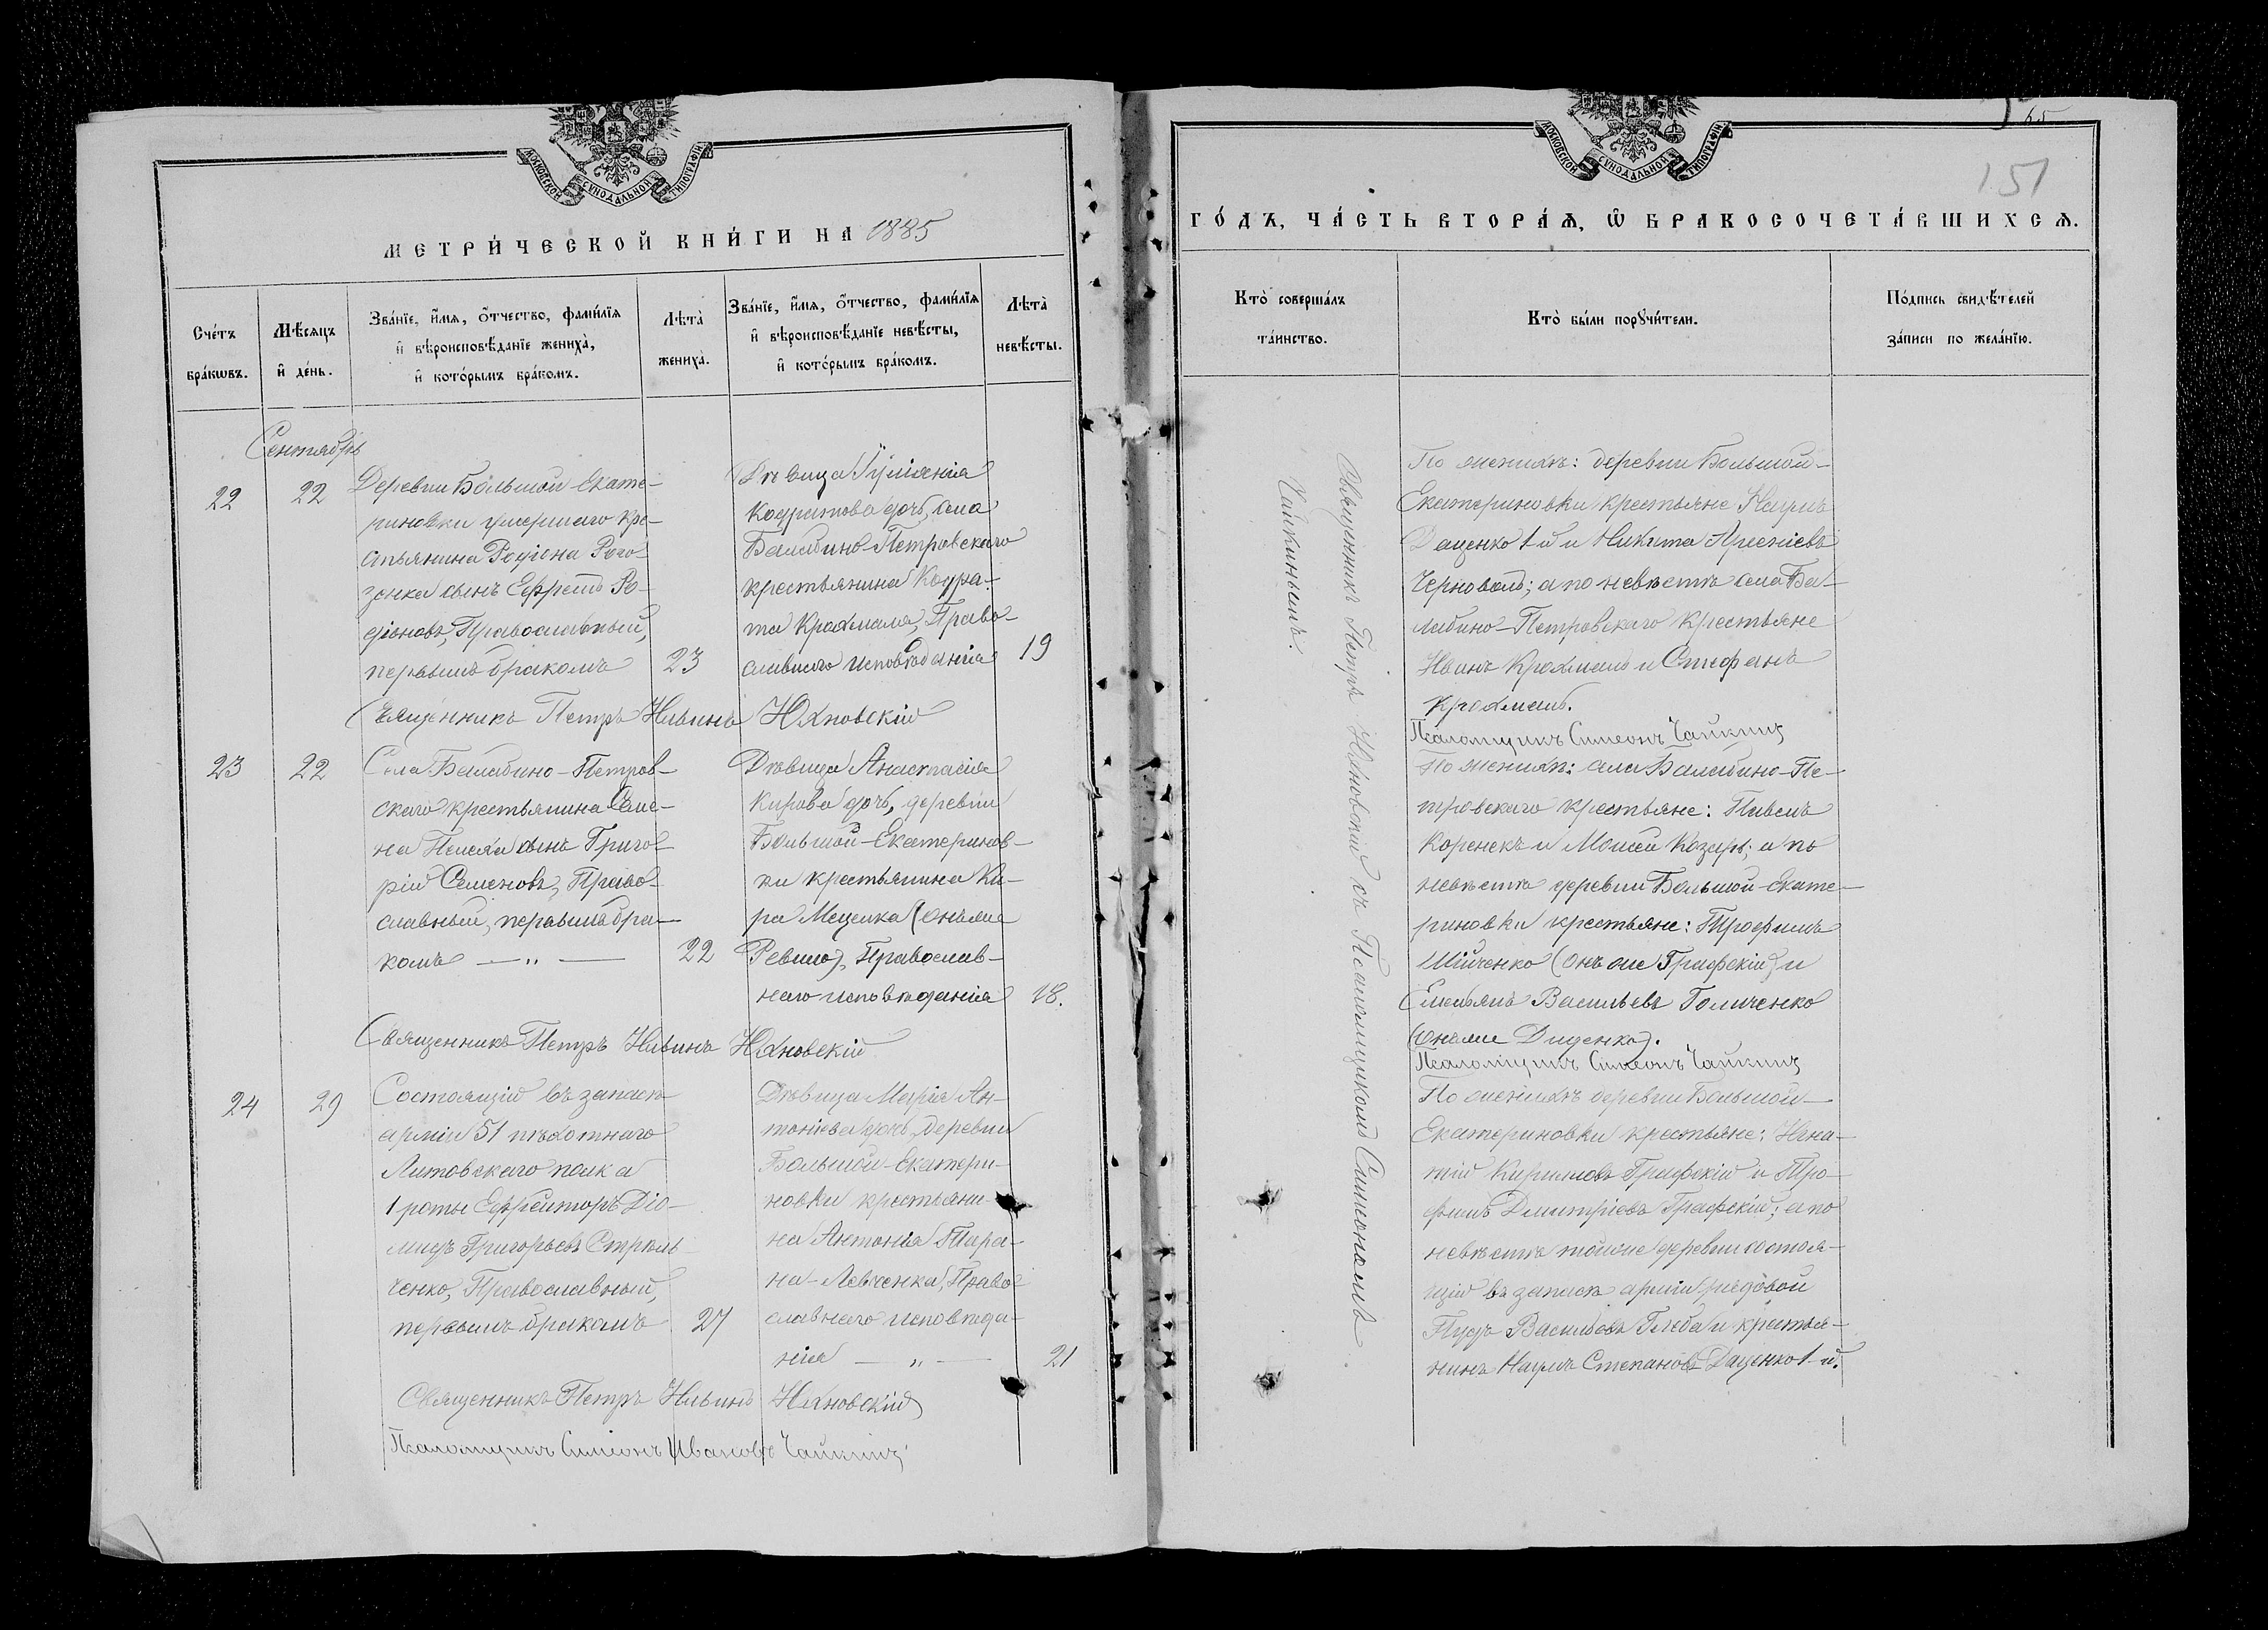 МОСКОВСКОЙ СѴНОДАЛЬНОЙ ТИПОГРАФІИ
МЕТРИ́ЧЕСКОЙ КНИ́ГИ НА 1885
Сче́тъ бра́кѡвъ.
Мѣ́сяцъ и҆ де́нь.
Зва́нїе, и҆́мѧ, ѻ҆́тчество, фами́лїѧ
и҆ вѣроисповѣ́данїе жениха̀,
и҆ кото́рымъ бра́комъ.
Лѣта̀ жениха̀.
Зва́нїе, и҆́мѧ, ѻ҆́тчество, фами́лїѧ
и҆ вѣроисповѣ́данїе невѣ́сты,
и҆ кото́рымъ бра́комъ.
Лѣта̀ невѣ́сты.
Сентябрь
22
22
Деревни Большой-Екате-
риновки умершаго кре-
стьянина Родіона Рого
зенка сынъ Ефремъ Ро-
діоновъ, Православный,
первымъ бракомъ
23
Дѣвица Іуліанія
Кодратова дочь, села
Балабино-Петровскаго
крестьянина Кодра-
та Крохмаля, Право-
славнаго исповѣданія
19
Священникъ Петръ Ильинъ Юхновскій
23
22
Села Балабино-Петров-
скаго крестьянина Семе-
на сынъ Григо-
рій Семеновъ, Право-
славный, первымъ бра-
комъ — „ —
22
Дѣвица Анастасія
Кирова дочь, деревни
Большой-Екатеринов-
ки крестьянина Ки-
ра (онъже
Православ-
наго исповѣданія
18.
Священникъ Петръ Ильинъ Юхновскій
24
29
Состоящій въ запасѣ
арміи 51 пѣхотнаго
Литовскаго полка
1 роты Ефрейторъ Діо-
мидъ Григорьевъ Стрѣль-
ченко, Православный,
первымъ бракомъ
27
Дѣвица Марія Ан-
тоніева дочь, деревни
Большой-Екатери-
новки крестьяни-
на Антонія Тара-
на-Левченка, Право-
славнаго исповѣда-
нія — „ —
21
Священникъ Петръ Ильинъ Юхновскій
Псаломщикъ Симеонъ Ивановъ Чайкинъ
МОСКОВСКОЙ СѴНОДАЛЬНОЙ ТИПОГРАФІИ
65
151
ГО́ДЪ, ЧА́СТЬ ВТОРА́Ѧ, Ѽ БРАКОСОЧЕТА́ВШИХСѦ.
Кто̀ соверша́лъ
та́инство.
Кто̀ бы́ли порꙋчи́тели.
По́дпись свидѣ́телей
за́писи по жела́нїю.
Священникъ Петръ Юхновскій съ Псаломщикомъ Симеономъ
Чайкинымъ.
По женихѣ: деревни Большой-
Екатериновки крестьяне Наумъ
Даценко 1-й и Никита Арсеніевъ
Черноволъ; а по невѣстѣ села Ба-
лабино-Петровскаго крестьяне
Иванъ Крохмаль и Стефанъ
Крохмаль.
Псаломщикъ Симеонъ Чайкинъ
По женихѣ: села Балабино-Пе-
тровскаго крестьяне: Павелъ
Коренекъ и Моисей Козырь; а по
невѣстѣ деревни Большой-Екате-
риновки крестьяне: Трофимъ
(онъ же Графскій) и
Емельянъ Васильевъ Голиченко
(онъже Диденко).
Псаломщикъ Симеонъ Чайкинъ
По женихѣ деревни Большой-
Екатериновки крестьяне: Игна-
тій Кириловъ Графскій и Тро-
фимъ Дмитріевъ Графскій; а по
невѣстѣ тойже деревни состоя-
щій въ запасѣ арміи рядовой
Пудъ Васильевъ Глеба и крестья-
нинъ Наумъ Степановъ Даценко 1-й.